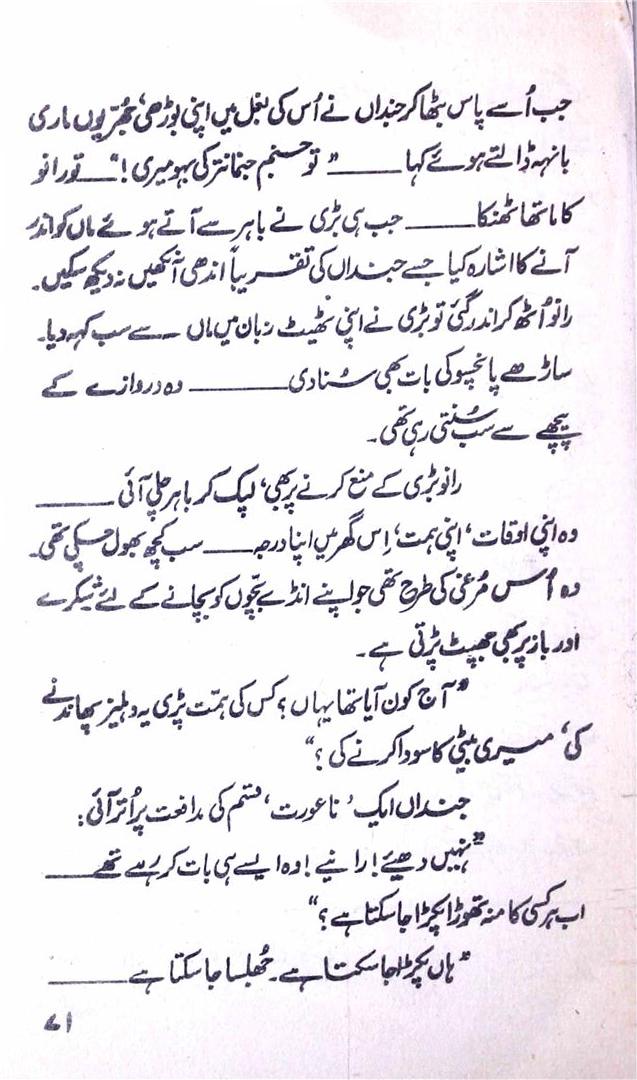 جب اُسے پاس بٹھا کر جنداں نے اُس کی بغل میں اپنی بوڑھی، جُھرّیوں ماری
بانہہ ڈالتے ہوئے کہا ——— ”تو جنم جنمانتر کی بہو میری!“ —— تو رانو
کا ماتھا ٹھنکا ——— جب ہی بڑی نے باہر سے آتے ہوئے ماں کو اندر
آنے کا اشارہ کیا جسے جنداں کی تقریباً اندھی آنکھیں نہ دیکھ سکیں۔
رانو اُٹھ کر اندر گئی تو بڑی نے اپنی ٹھیٹ زبان میں ماں —— سے سب کہہ دیا۔
ساڑھے پانچسو کی بات بھی سُنا دی ——— وہ دروازے کے
پیچھے سے سب سُنتی رہی تھی۔
رانو بڑی کے منع کرنے پر بھی، لپک کر باہر چلی آئی ———
وہ اپنی اوقات، اپنی ہمت، اِس گھر میں اپنا درجہ —— سب کچھ بھول چکی تھی۔
وہ اُس مُرغی کی طرح تھی جو اپنے انڈے بچّوں کو بچانے کے لئے شِکرے
اور باز پر بھی جھپٹ پڑتی ہے۔
”آج کون آیا تھا یہاں؟ کس کی ہمّت پڑی یہ دہلیز پھاندنے
کی، میری بیٹی کا سودا کرنے کی؟“
جنداں ایک ’ناعورت‘ قسم کی مدافعت پر اُتر آئی:
”نہیں دھیئے! رانیے! وہ ایسے ہی بات کر رہے تھے ———
اب ہر کسی کا منہ تھوڑا پکڑا جا سکتا ہے؟“
”ہاں پکڑا جا سکتا ہے۔ جُھلسا جا سکتا ہے ———
۷۱